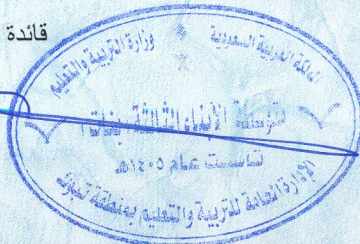 قائدة
المملكة العربية السعودية
وزارة التربية والتعليم
متوسطة الأبناء الثالثة بنات
تأسست عام ١٤٠٥هـ
الإدارة العامة للتربية والتعليم بمنطقة تبوك